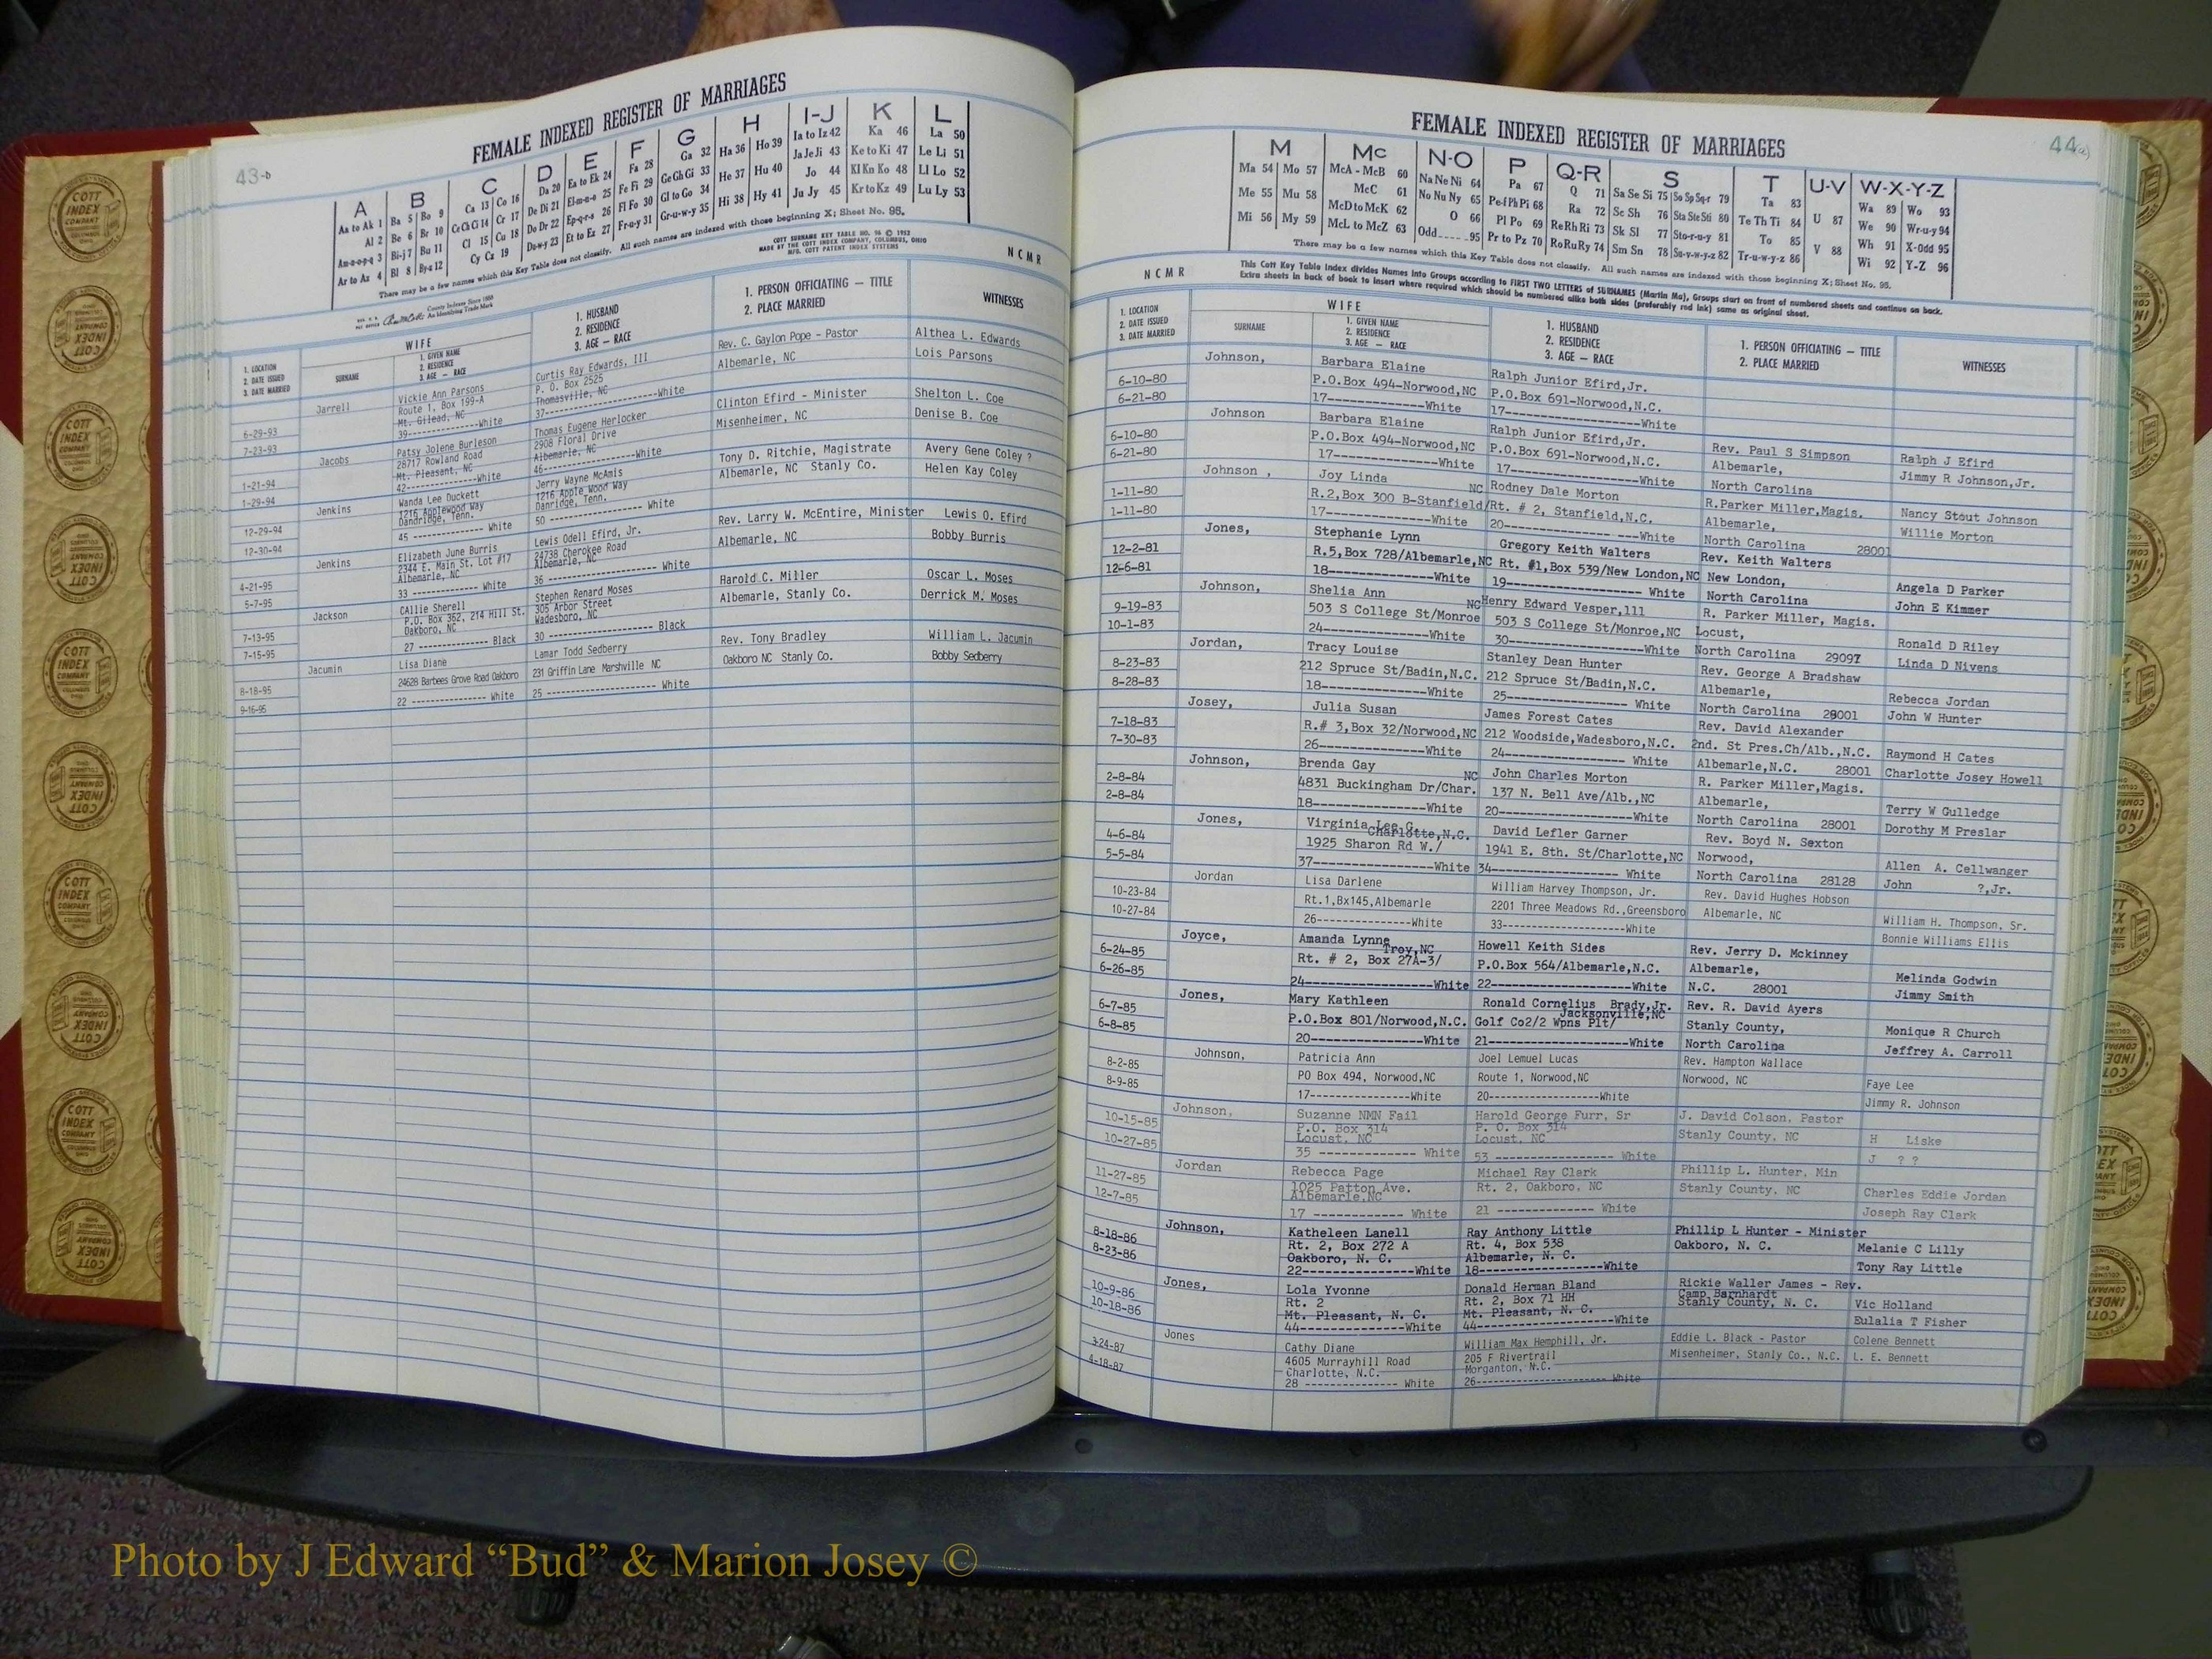 43-b
FEMALE INDEXED REGISTER OF MARRIAGES
A B C D E F G H I-J K L
Aa to Ak 1 Ba 5 Bo 9 Ca 13 Co 16 Da 20 Ea to Ek 24 Fa 28 Ga 32 Ha 36 Ho 39 Ia to Iz 42 Ka 46 La 50
Al 2 Be 6 Br 10 Ce Ch Ci 14 Cr 17 De Di 21 El-m-n-o 25 Fe Fi 29 Ge Gh Gi 33 He 37 Hu 40 Ja Je Ji 43 Ke to Ki 47 Le Li 51
Am-n-o-p-q 3 Bi-j 7 Bu 11 Cl 15 Cu 18 Do Dr 22 Ep-q-r-s 26 Fl Fo 30 Gl to Go 34 Hi 38 Hy 41 Jo 44 Kl Kn Ko 48 Ll Lo 52
Ar to Az 4 Bl 8 By-z 12 Cy Cz 19 Du-w-y 23 Et to Ez 27 Fr-u-y 31 Gr-u-w-y 35 Ju Jy 45 Kr to Kz 49 Lu Ly 53
There may be a few names which this Key Table does not classify. All such names are indexed with those beginning X; Sheet No. 95.
COTT SURNAME KEY TABLE NO. 96 © 1952
MADE BY THE COTT INDEX COMPANY, COLUMBUS, OHIO
MFG. COTT PATENT INDEX SYSTEMS
County Indexes Since 1888
An Identifying Trade Mark
N C M R
1. LOCATION
2. DATE ISSUED
3. DATE MARRIED
WIFE
SURNAME
1. GIVEN NAME
2. RESIDENCE
3. AGE — RACE
1. HUSBAND
2. RESIDENCE
3. AGE — RACE
1. PERSON OFFICIATING — TITLE
2. PLACE MARRIED
WITNESSES
Jarrell Vickie Ann Parsons Curtis Ray Edwards, III Rev. C. Gaylon Pope - Pastor Althea L. Edwards
Route 1, Box 199-A P. O. Box 2525 Albemarle, NC Lois Parsons
6-29-93 Mt. Gilead, NC Thomasville, NC
7-23-93 39--------------White 37--------------------White
Jacobs Patsy Jolene Burleson Thomas Eugene Herlocker Clinton Efird - Minister Shelton L. Coe
28717 Rowland Road 2908 Floral Drive Misenheimer, NC Denise B. Coe
1-21-94 Mt. Pleasant, NC Albemarle, NC
1-29-94 42--------------White 46--------------------White
Jenkins Wanda Lee Duckett Jerry Wayne McAmis Tony D. Ritchie, Magistrate Avery Gene Coley ?
1216 Applewood Way 1216 Apple Wood Way Albemarle, NC Stanly Co. Helen Kay Coley
12-29-94 Dandridge, Tenn. Danridge, Tenn.
12-30-94 45 ------------ White 50 -------------------- White
Jenkins Elizabeth June Burris Lewis Odell Efird, Jr. Rev. Larry W. McEntire, Minister Lewis O. Efird
2344 E. Main St. Lot #17 24738 Cherokee Road Albemarle, NC Bobby Burris
4-21-95 Albemarle, NC Albemarle, NC
5-7-95 33 ------------ White 36 -------------------- White
Jackson CAllie Sherell Stephen Renard Moses Harold C. Miller Oscar L. Moses
P.O. Box 362, 214 Hill St. 305 Arbor Street Albemarle, Stanly Co. Derrick M. Moses
7-13-95 Oakboro, NC Wadesboro, NC
7-15-95 27 ------------ Black 30 -------------------- Black
Jacumin Lisa Diane Lamar Todd Sedberry Rev. Tony Bradley William L. Jacumin
8-18-95 24628 Barbees Grove Road Oakboro 231 Griffin Lane Marshville NC Oakboro NC Stanly Co. Bobby Sedberry
9-16-95 22 ------------ White 25 -------------------- White
44(a)
FEMALE INDEXED REGISTER OF MARRIAGES
M Mc N-O P Q-R S T U-V W-X-Y-Z
Ma 54 Mo 57 McA - McB 60 Na Ne Ni 64 Pa 67 Q 71 Sa Se Si 75 So Sp Sq-r 79 Ta 83 Wa 89 Wo 93
Me 55 Mu 58 McC 61 No Nu Ny 65 Pe-f Ph Pi 68 Ra 72 Sc Sh 76 Sta Ste Sti 80 Te Th Ti 84 U 87 We 90 Wr-u-y 94
Mi 56 My 59 McD to McK 62 O 66 Pl Po 69 Re Rh Ri 73 Sk Sl 77 Sto-r-u-y 81 To 85 Wh 91 X-Odd 95
McL to McZ 63 Odd-----95 Pr to Pz 70 Ro Ru Ry 74 Sm Sn 78 Su-v-w-y-z 82 Tr-u-w-y-z 86 V 88 Wi 92 Y-Z 96
There may be a few names which this Key Table does not classify. All such names are indexed with those beginning X; Sheet No. 95.
This Cott Key Table Index divides Names into Groups according to FIRST TWO LETTERS of SURNAMES (Martin Ma), Groups start on front of numbered sheets and continue on back.
Extra sheets in back of book to insert where required which should be numbered alike both sides (preferably red ink) same as original sheet.
N C M R
1. LOCATION
2. DATE ISSUED
3. DATE MARRIED
WIFE
SURNAME
1. GIVEN NAME
2. RESIDENCE
3. AGE — RACE
1. HUSBAND
2. RESIDENCE
3. AGE — RACE
1. PERSON OFFICIATING — TITLE
2. PLACE MARRIED
WITNESSES
Johnson, Barbara Elaine Ralph Junior Efird,Jr.
6-10-80 P.O.Box 494-Norwood,NC P.O.Box 691-Norwood,N.C.
6-21-80 17--------------White 17------------------White
Johnson Barbara Elaine Ralph Junior Efird,Jr. Rev. Paul S Simpson Ralph J Efird
6-10-80 P.O.Box 494-Norwood,NC P.O.Box 691-Norwood,N.C. Albemarle, Jimmy R Johnson,Jr.
6-21-80 17--------------White 17------------------White North Carolina
Johnson , Joy Linda NC Rodney Dale Morton R.Parker Miller,Magis. Nancy Stout Johnson
1-11-80 R.2,Box 300 B-Stanfield/ Rt. # 2, Stanfield,N.C. Albemarle, Willie Morton
1-11-80 17--------------White 20------------------White North Carolina 28001
Jones, Stephanie Lynn Gregory Keith Walters Rev. Keith Walters
12-2-81 R.5,Box 728/Albemarle,NC Rt. #1,Box 539/New London,NC New London, Angela D Parker
12-6-81 18--------------White 19------------------ White North Carolina John E Kimmer
Johnson, Shelia Ann NC Henry Edward Vesper,lll R. Parker Miller, Magis.
9-19-83 503 S College St/Monroe 503 S College St/Monroe,NC Locust, Ronald D Riley
10-1-83 24--------------White 30------------------White North Carolina 29097 Linda D Nivens
Jordan, Tracy Louise Stanley Dean Hunter Rev. George A Bradshaw
8-23-83 212 Spruce St/Badin,N.C. 212 Spruce St/Badin,N.C. Albemarle, Rebecca Jordan
8-28-83 18--------------White 25---------------- White North Carolina 28001 John W Hunter
Josey, Julia Susan James Forest Cates Rev. David Alexander
7-18-83 R.# 3,Box 32/Norwood,NC 212 Woodside,Wadesboro,N.C. 2nd. St Pres.Ch/Alb.,N.C. Raymond H Cates
7-30-83 26--------------White 24---------------- White Albemarle,N.C. 28001 Charlotte Josey Howell
Johnson, Brenda Gay NC John Charles Morton R. Parker Miller,Magis.
2-8-84 4831 Buckingham Dr/Char. 137 N. Bell Ave/Alb.,NC Albemarle, Terry W Gulledge
2-8-84 18----------------White 20------------------White North Carolina 28001 Dorothy M Preslar
Jones, Virginia Lee G. Charlotte,N.C. David Lefler Garner Rev. Boyd N. Sexton
4-6-84 1925 Sharon Rd W./ 1941 E. 8th. St/Charlotte,NC Norwood, Allen A. Cellwanger
5-5-84 37----------------White 34------------------ White North Carolina 28128 John ?,Jr.
Jordan Lisa Darlene William Harvey Thompson, Jr. Rev. David Hughes Hobson
10-23-84 Rt.1,Bx145,Albemarle 2201 Three Meadows Rd.,Greensboro Albemarle, NC William H. Thompson, Sr.
10-27-84 26--------------White 33------------------White Bonnie Williams Ellis
Joyce, Amanda Lynne Troy,NC Howell Keith Sides Rev. Jerry D. Mckinney
6-24-85 Rt. # 2, Box 27A-3/ P.O.Box 564/Albemarle,N.C. Albemarle, Melinda Godwin
6-26-85 24------------------White 22--------------------White N.C. 28001 Jimmy Smith
Jones, Mary Kathleen Ronald Cornelius Brady,Jr. Jacksonville,NC Rev. R. David Ayers
6-7-85 P.O.Box 801/Norwood,N.C. Golf Co2/2 Wpns Plt/ Stanly County, Monique R Church
6-8-85 20----------------White 21--------------------White North Carolina Jeffrey A. Carroll
Johnson, Patricia Ann Joel Lemuel Lucas Rev. Hampton Wallace
8-2-85 PO Box 494, Norwood,NC Route 1, Norwood,NC Norwood, NC Faye Lee
8-9-85 17--------------White 20----------------White Jimmy R. Johnson
Johnson, Suzanne NMN Fail Harold George Furr, Sr J. David Colson, Pastor
10-15-85 P.O. Box 314 P. O. Box 314 Stanly County, NC H Liske
10-27-85 Locust, NC Locust, NC J ? ?
35 -------------- White 53 ---------------- White
Jordan Rebecca Page Michael Ray Clark Phillip L. Hunter, Min
11-27-85 1025 Patton Ave. Rt. 2, Oakboro, NC Stanly County, NC Charles Eddie Jordan
12-7-85 Albemarle,NC Joseph Ray Clark
17 ------------ White 21 -------------- White
Johnson, Katheleen Lanell Ray Anthony Little Phillip L Hunter - Minister
8-18-86 Rt. 2, Box 272 A Rt. 4, Box 538 Oakboro, N. C. Melanie C Lilly
8-23-86 Oakboro, N. C. Albemarle, N. C. Tony Ray Little
22----------------White 18------------------White
Jones, Lola Yvonne Donald Herman Bland Rickie Waller James - Rev.
10-9-86 Rt. 2 Rt. 2, Box 71 HH Camp Barnhardt Vic Holland
10-18-86 Mt. Pleasant, N. C. Mt. Pleasant, N. C. Stanly County, N. C. Eulalia T Fisher
44----------------White 44--------------------White
Jones Cathy Diane William Max Hemphill, Jr. Eddie L. Black - Pastor Colene Bennett
3-24-87 4605 Murrayhill Road 205 F Rivertrail Misenheimer, Stanly Co., N.C. L. E. Bennett
4-18-87 Charlotte, N.C. Morganton, N.C.
28 ---------------- White 26---------------------- White
COTT INDEX COMPANY
COLUMBUS OHIO
Photo by J Edward “Bud” & Marion Josey ©